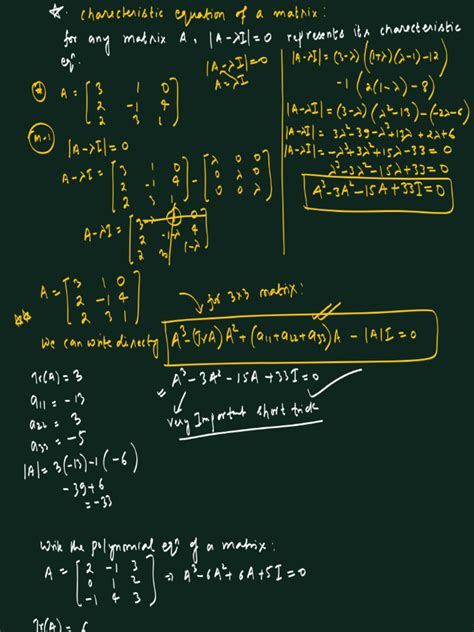 ☆ characteristic equation of a matrix:
for any matrix A, |A-λI|=0 represents its characteristic
eqⁿ.
|A-λI|=0
A-λI
A = [3 1 0
2 -1 4
2 3 1]
m-1
|A-λI|=0
A-λI = [3 1 0
2 -1 4
2 3 1] - [λ 0 0
0 λ 0
0 0 λ]
A-λI = [3-λ 1 0
2 -1-λ 4
2 3 1-λ]
|A-λI| = (3-λ)((1+λ)(λ-1)-12)
-1(2(1-λ)-8)
|A-λI| = (3-λ)(λ²-13)-(-2λ-6)
|A-λI| = 3λ²-39-λ³+13λ+2λ+6
|A-λI| = -λ³+3λ²+15λ-33=0
λ³-3λ²-15λ+33=0
A³-3A²-15A+33I=0
A = [3 1 0
2 -1 4
2 3 1]
for 3x3 matrix:
we can write directly A³-(TrA)A²+(a₁₁+a₂₂+a₃₃)A - |A|I=0
Tr(A) = 3
A³-3A²-15A+33I=0
a₁₁ = -13
a₂₂ = 3
a₃₃ = -5
very Important short trick
|A| = 3(-13)-1(-6)
-39+6
=-33
Write the polynomial eqⁿ of a matrix:
A = [2 -1 3
0 1 2
-1 4 3] ⇒ A³-6A²+6A+5I=0
Tr(A) = 6